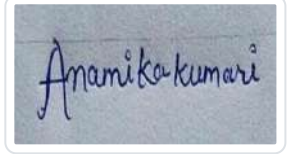 Anamika kumari